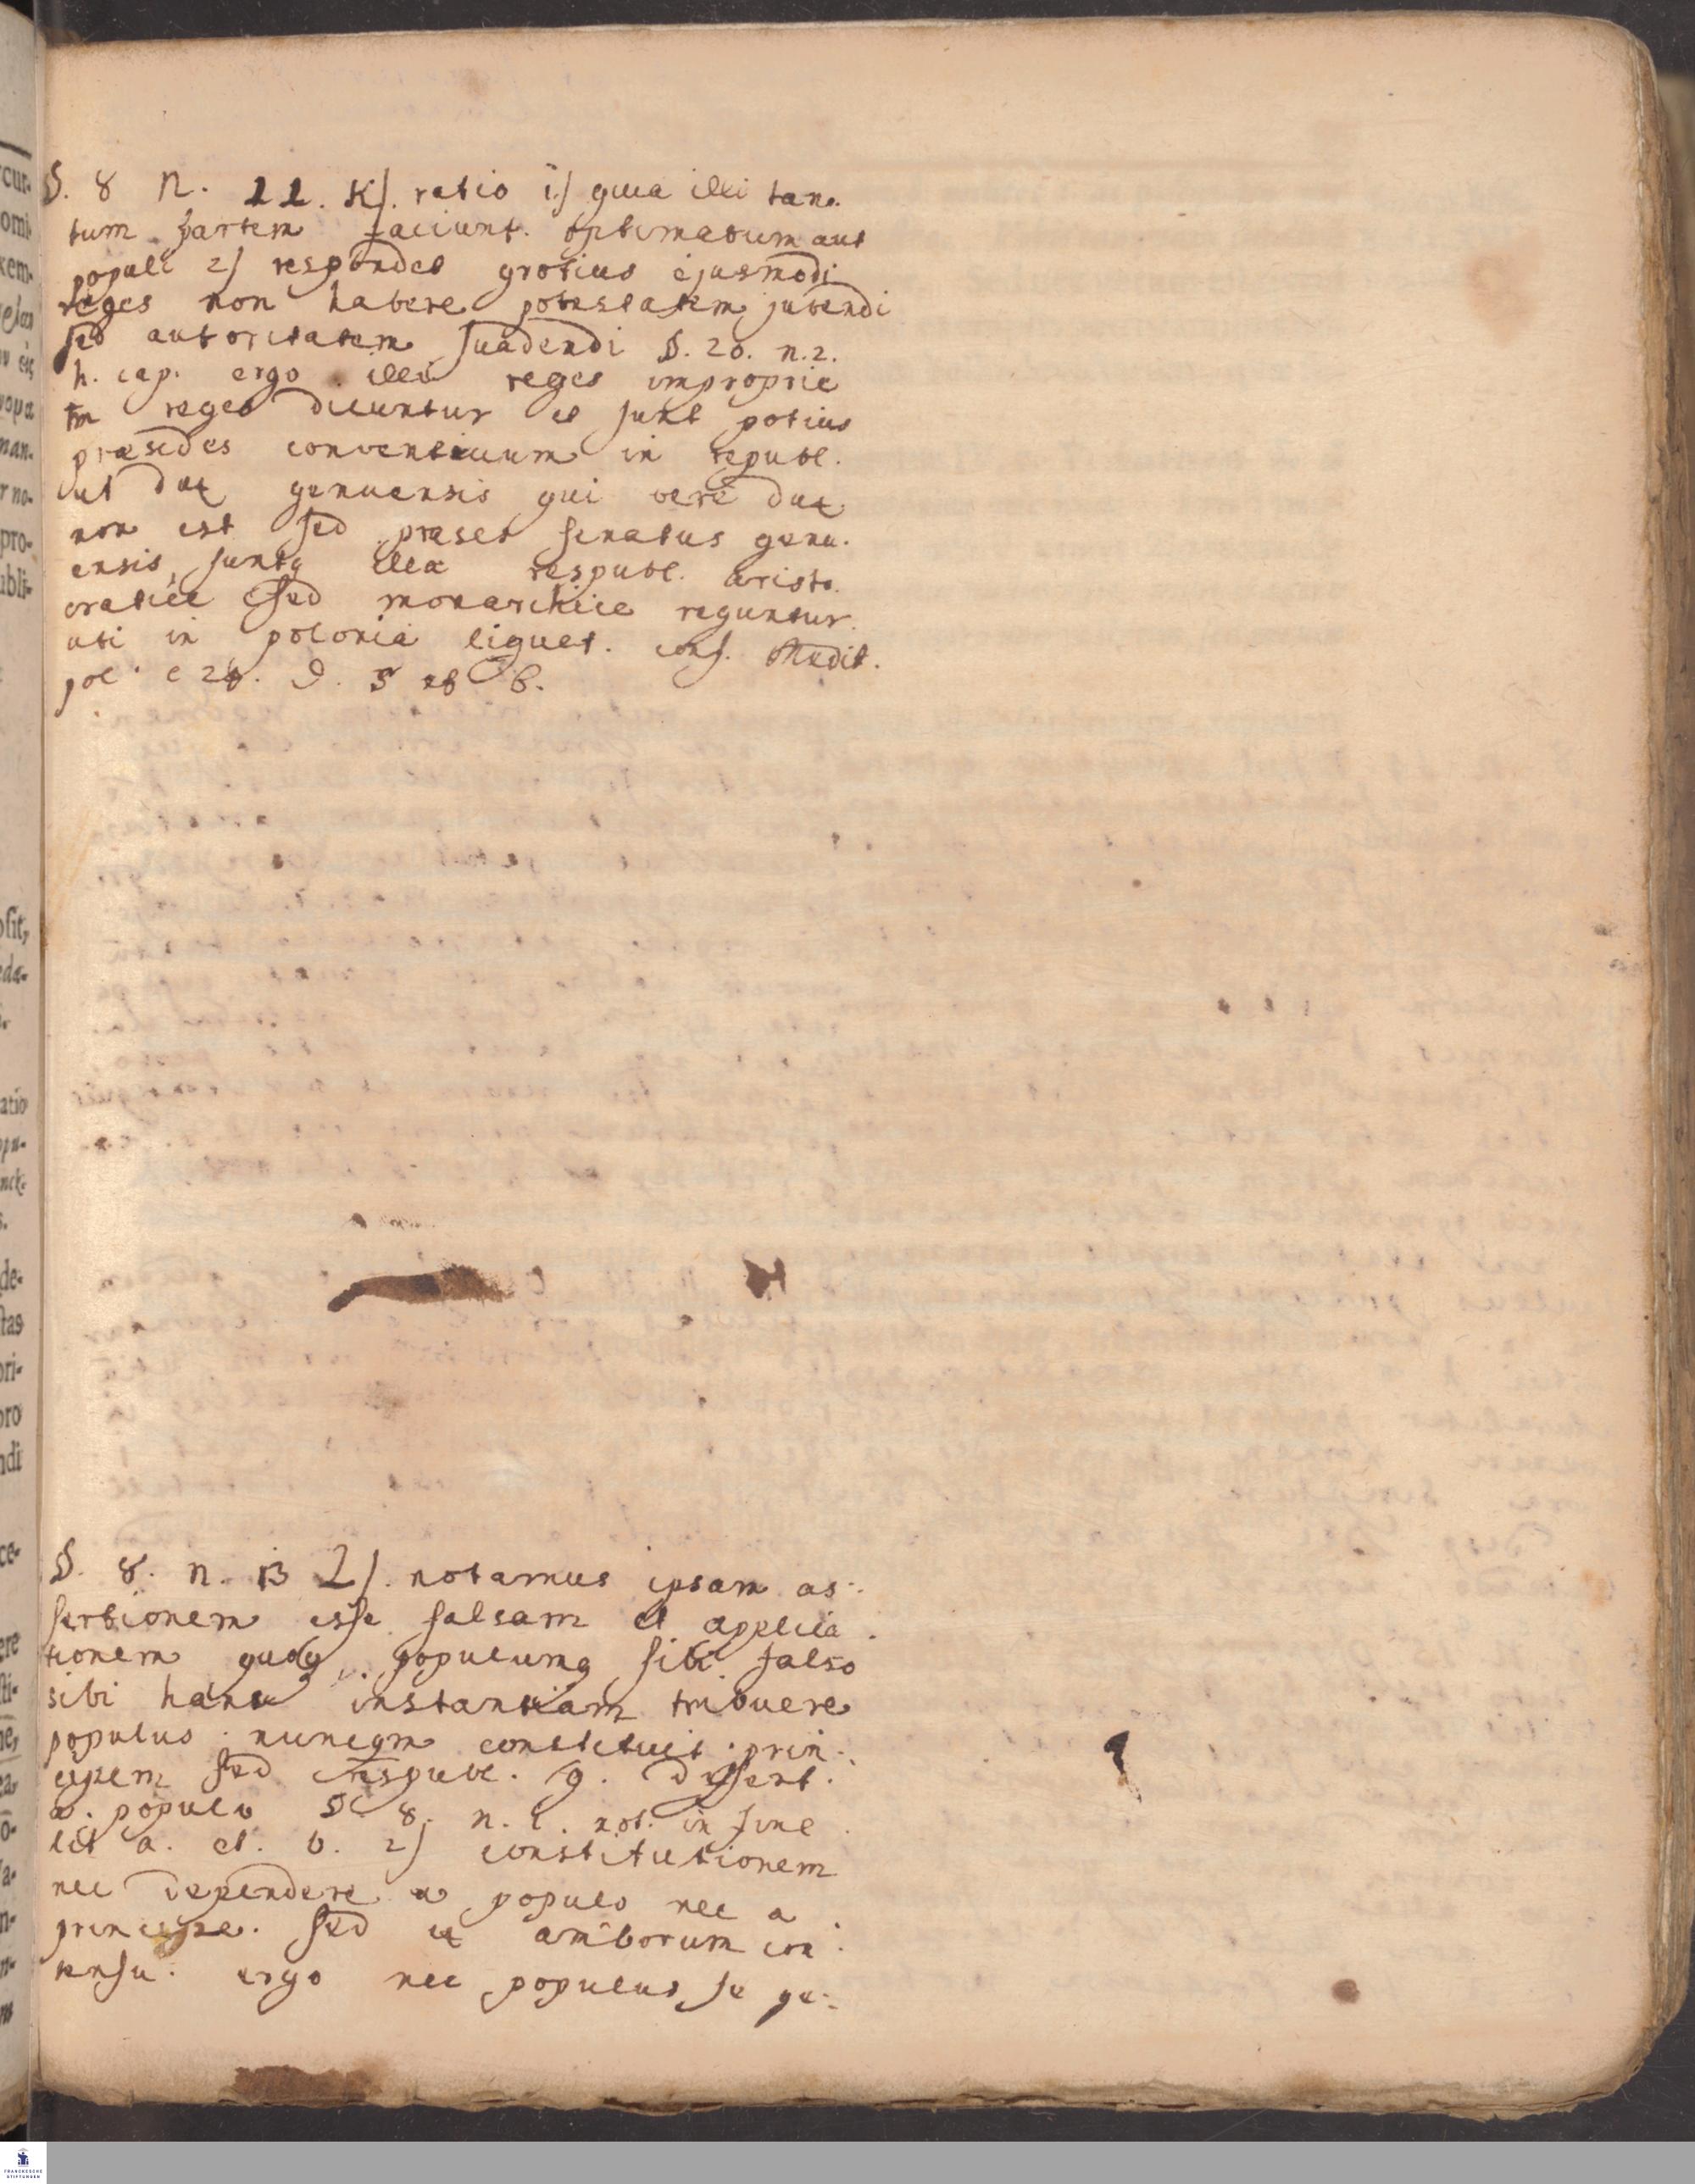 §. 8 n. 11. K). ratio 1) quia illi tan-
tum partem faciunt optimatum aut
populi 2) respondet grotius ejusmodi
reges non habere potestatem jubendi
sed autoritatem suadendi §. 20. n. 2.
h. cap. ergo illi reges improprie
tm reges dicuntur et sunt potius
præsides conventuum in republ.
ut dux genuensis qui vere dux
non est sed præses senatus genu-
ensis, suntq illæ respubl. aristo-
cratice sed monarchice reguntur
uti in polonia liquet. conf.
pol. c
§. 8. n. 13 L). notamus ipsam as-
sertionem esse falsam et applica-
tionem populumq sibi falso
sibi hanc instantiam tribuere
populus nunqm constituit prin-
cipem sed respubl. g. differt
a populo §. 8. n. 1. not. in fine
lit a. et. b. 2) constitutionem
nec dependere a populo nec a
principe. sed ex amborum con-
sensu. ergo nec populus se ge-
cur-
omi-
kem-
man-
r no-
pro-
ubli-
osit,
eda-
atio
de-
tas
ori-
oro
ndi
ce-
ere
FRANCKESCHE
STIFTUNGEN